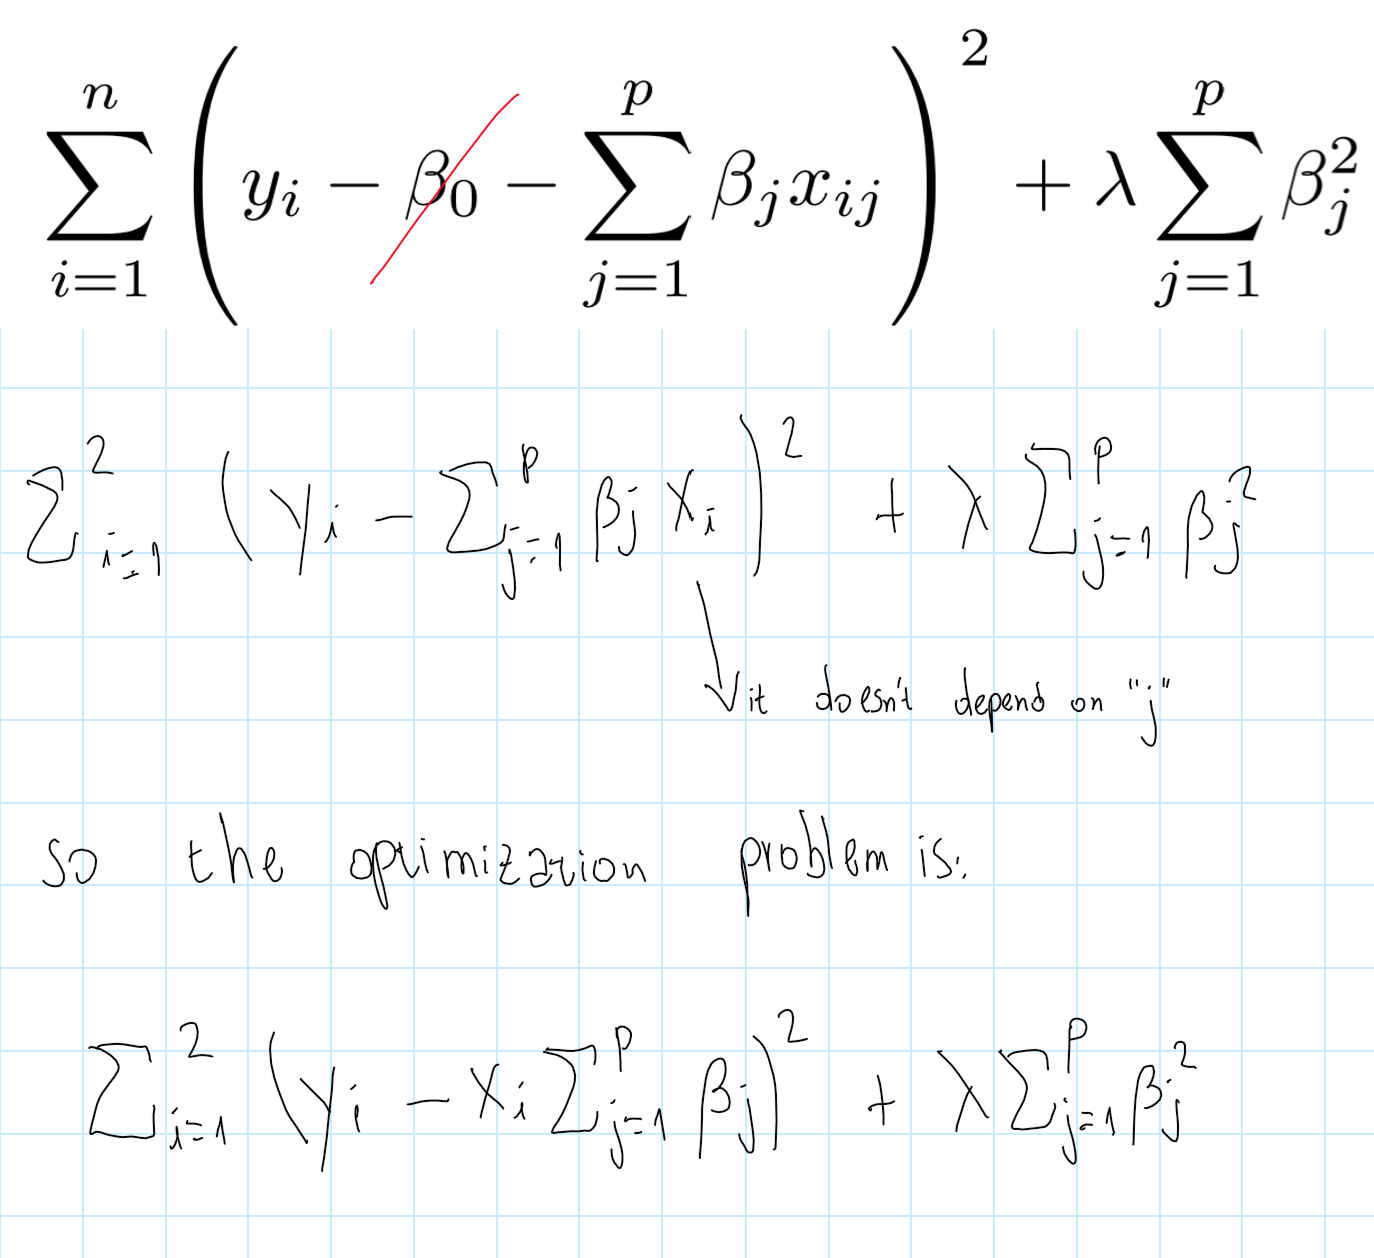 $\sum_{i=1}^{n} \left( y_i - \cancel{\beta_0} - \sum_{j=1}^{p} \beta_j x_{ij} \right)^2 + \lambda \sum_{j=1}^{p} \beta_j^2$
$\sum_{i=1}^{2} \left( y_i - \sum_{j=1}^{p} \beta_j x_i \right)^2 + \lambda \sum_{j=1}^{p} \beta_j^2$
it doesn't depend on "j"
so the optimization problem is:
$\sum_{i=1}^{2} \left( y_i - x_i \sum_{j=1}^{p} \beta_j \right)^2 + \lambda \sum_{j=1}^{p} \beta_j^2$